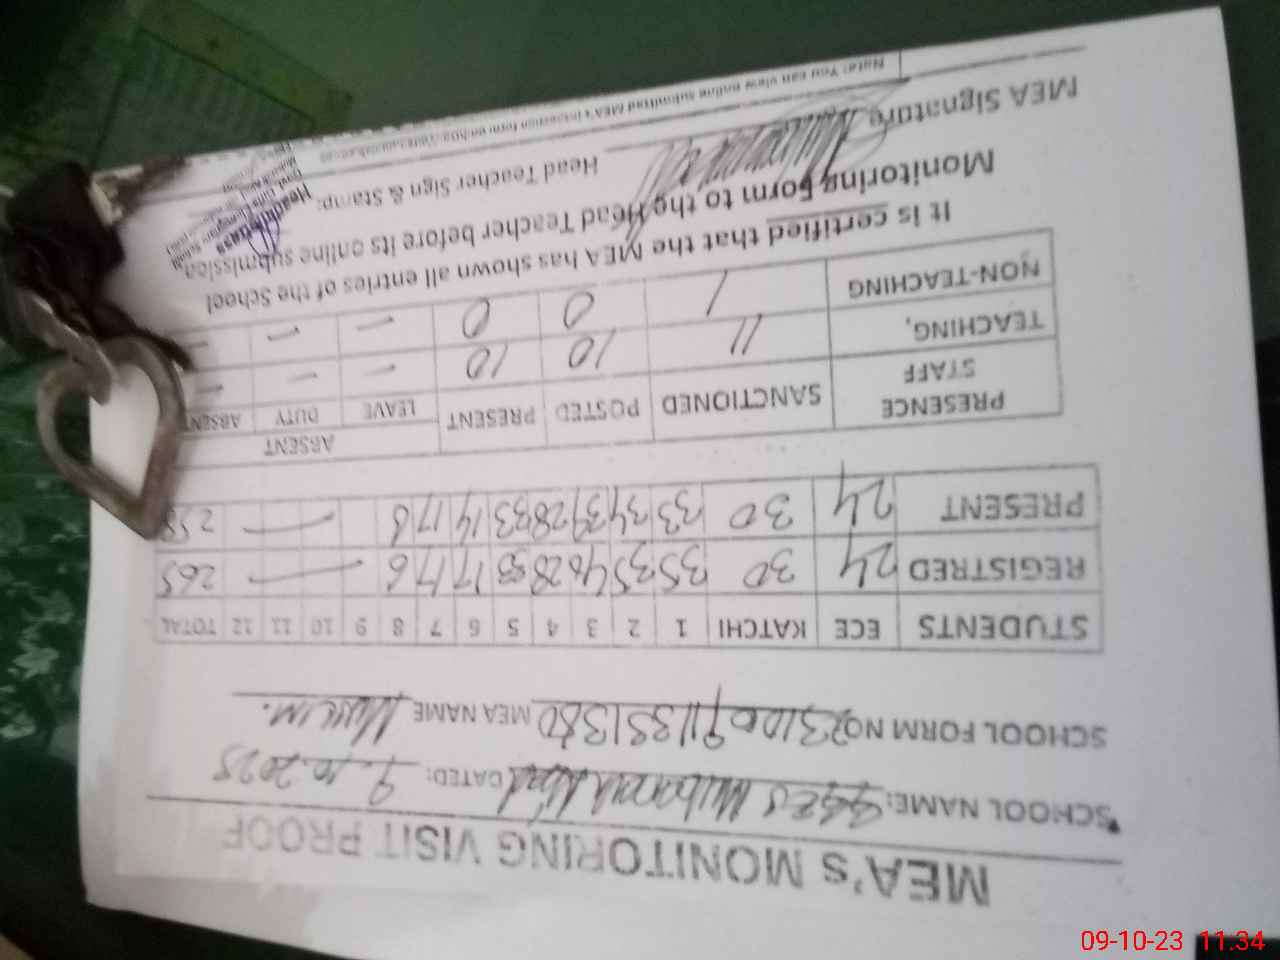 MEA's MONITORING VISIT PROOF
SCHOOL NAME: DATED: 9.10.2023
SCHOOL FORM NO MEA NAME
STUDENTS ECE KATCHI 1 2 3 4 5 6 7 8 9 10 11 12 TOTAL
REGISTRED 24 30 35 35 46 28 33 17 17 6 — 265
PRESENT 24 30 33 34 39 28 33 14 17 6 —
PRESENCE STAFF SANCTIONED POSTED PRESENT ABSENT
LEAVE DUTY ABSENT
TEACHING, 11 10 10 – – –
NON-TEACHING 1 0 0 – – –
It is certified that the MEA has shown all entries of the School
Monitoring Form to the Head Teacher before its online submission
MEA Signature Head Teacher Sign & Stamp:
Note: You can view online submitted MEA's inspection form on
09-10-23 11.34